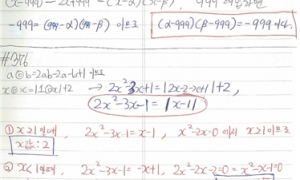 -999= (999-α)(999-β) 이므로 (α-999)(β-999)=-999+4.
a◎b=2ab-2a-b+1 이므로
x◎x=|1◎x|+2 → 2x²-3x+1=|2x-2-x+1|+2,
2x²-3x-1=|x-1|
① x≥1일때, 2x²-3x-1=x-1, x²-2x=0 이며 x≥1이므로
x값: 2
② x<1일때, 2x²-3x-1=-x+1, 2x²-2x-2=0 = x²-x-1=0